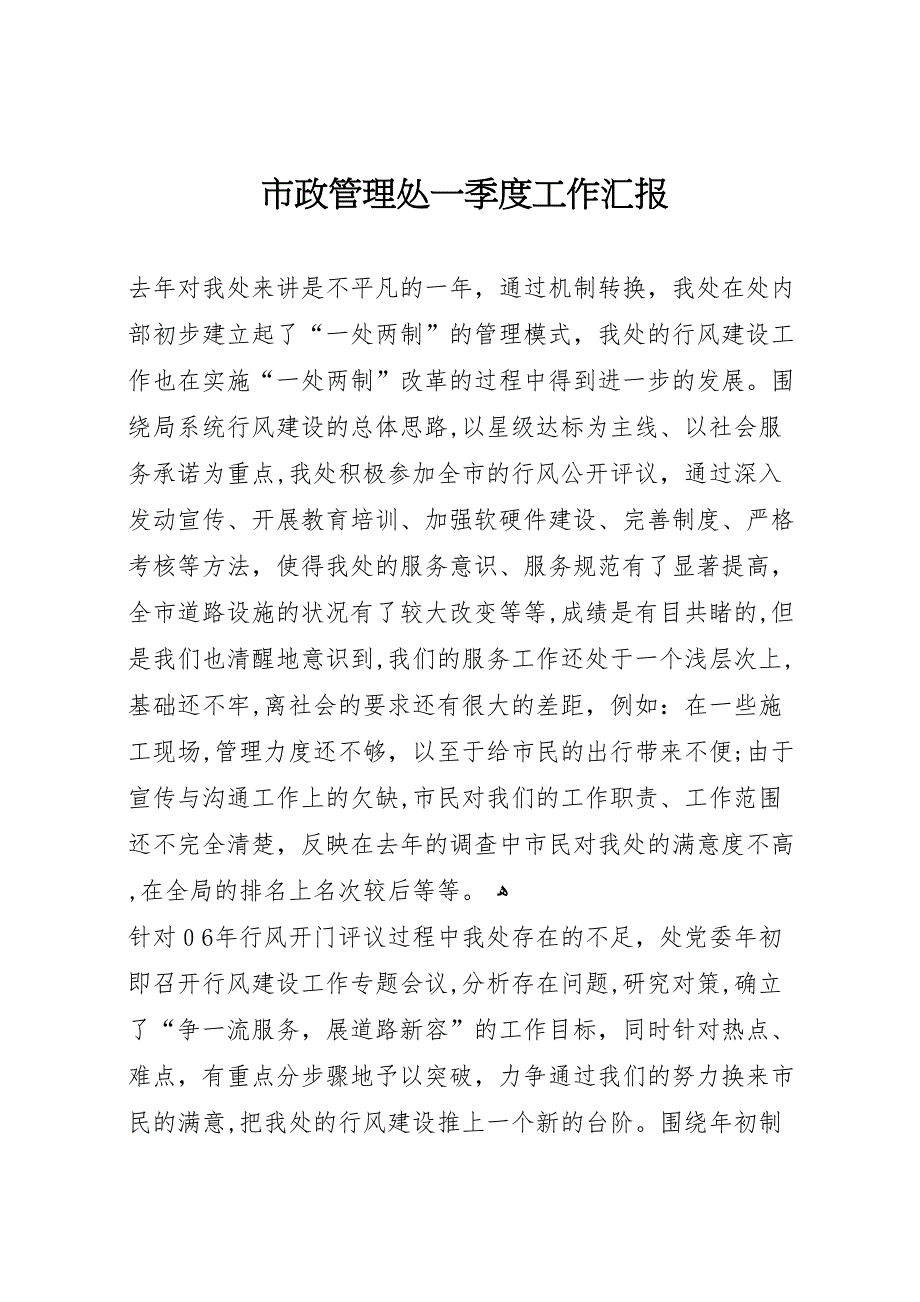 市政管理处一季度工作汇报
去年对我处来讲是不平凡的一年，通过机制转换，我处在处内
部初步建立起了“一处两制”的管理模式，我处的行风建设工
作也在实施“一处两制”改革的过程中得到进一步的发展。围
绕局系统行风建设的总体思路,以星级达标为主线、以社会服
务承诺为重点,我处积极参加全市的行风公开评议，通过深入
发动宣传、开展教育培训、加强软硬件建设、完善制度、严格
考核等方法，使得我处的服务意识、服务规范有了显著提高，
全市道路设施的状况有了较大改变等等,成绩是有目共睹的,但
是我们也清醒地意识到,我们的服务工作还处于一个浅层次上,
基础还不牢,离社会的要求还有很大的差距，例如：在一些施
工现场,管理力度还不够，以至于给市民的出行带来不便;由于
宣传与沟通工作上的欠缺,市民对我们的工作职责、工作范围
还不完全清楚，反映在去年的调查中市民对我处的满意度不高
,在全局的排名上名次较后等等。 ﻫ
针对06年行风开门评议过程中我处存在的不足，处党委年初
即召开行风建设工作专题会议,分析存在问题,研究对策,确立
了“争一流服务，展道路新容”的工作目标，同时针对热点、
难点，有重点分步骤地予以突破，力争通过我们的努力换来市
民的满意,把我处的行风建设推上一个新的台阶。围绕年初制